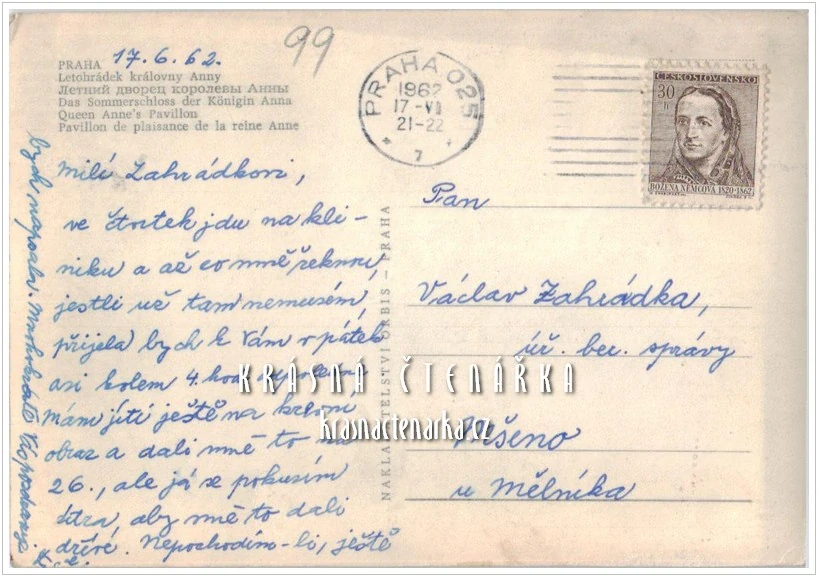 PRAHA 17.6.62.
Letohrádek královny Anny
Летний дворец королевы Анны
Das Sommerschloss der Königin Anna
Queen Anne's Pavillon
Pavillon de plaisance de la reine Anne
99
PRAHA 025
1962
17-VI
21-22
7
ČESKOSLOVENSKO
30
h
BOŽENA NĚMCOVÁ 1820-1862
Milí Zahrádkovi,
ve čtvrtek jdu na kli-
niku a až co mně řeknou,
jestli už tam nemusím,
přijela bych k Vám v pátek
asi kolem 4. hod.
Mám jíti ještě na krční
obraz a dali mně to na
26., ale já se pokusím
zítra, aby mně to dali
dříve. Nepochodím-li, ještě
bych napsala. Mnohokrátě Vás pozdravuje
NAKLADATELSTVÍ ORBIS – PRAHA
Pan
Václav Zahrádka,
úř. ber. správy
Mšeno
u Mělníka
KRÁSNÁ ČTENÁŘKA
krasnactenarka.cz